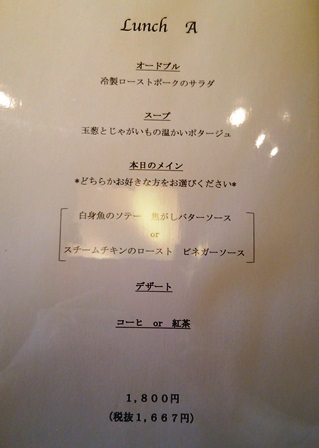 Lunch A
オードブル
冷製ローストポークのサラダ
スープ
玉葱とじゃがいもの温かいポタージュ
本日のメイン
*どちらかお好きな方をお選びください*
白身魚のソテー 焦がしバターソース
or
スチームチキンのロースト ビネガーソース
デザート
コーヒ or 紅茶
1,800円
(税抜1,667円)